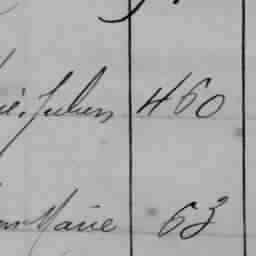 Julien 460
Marie 63